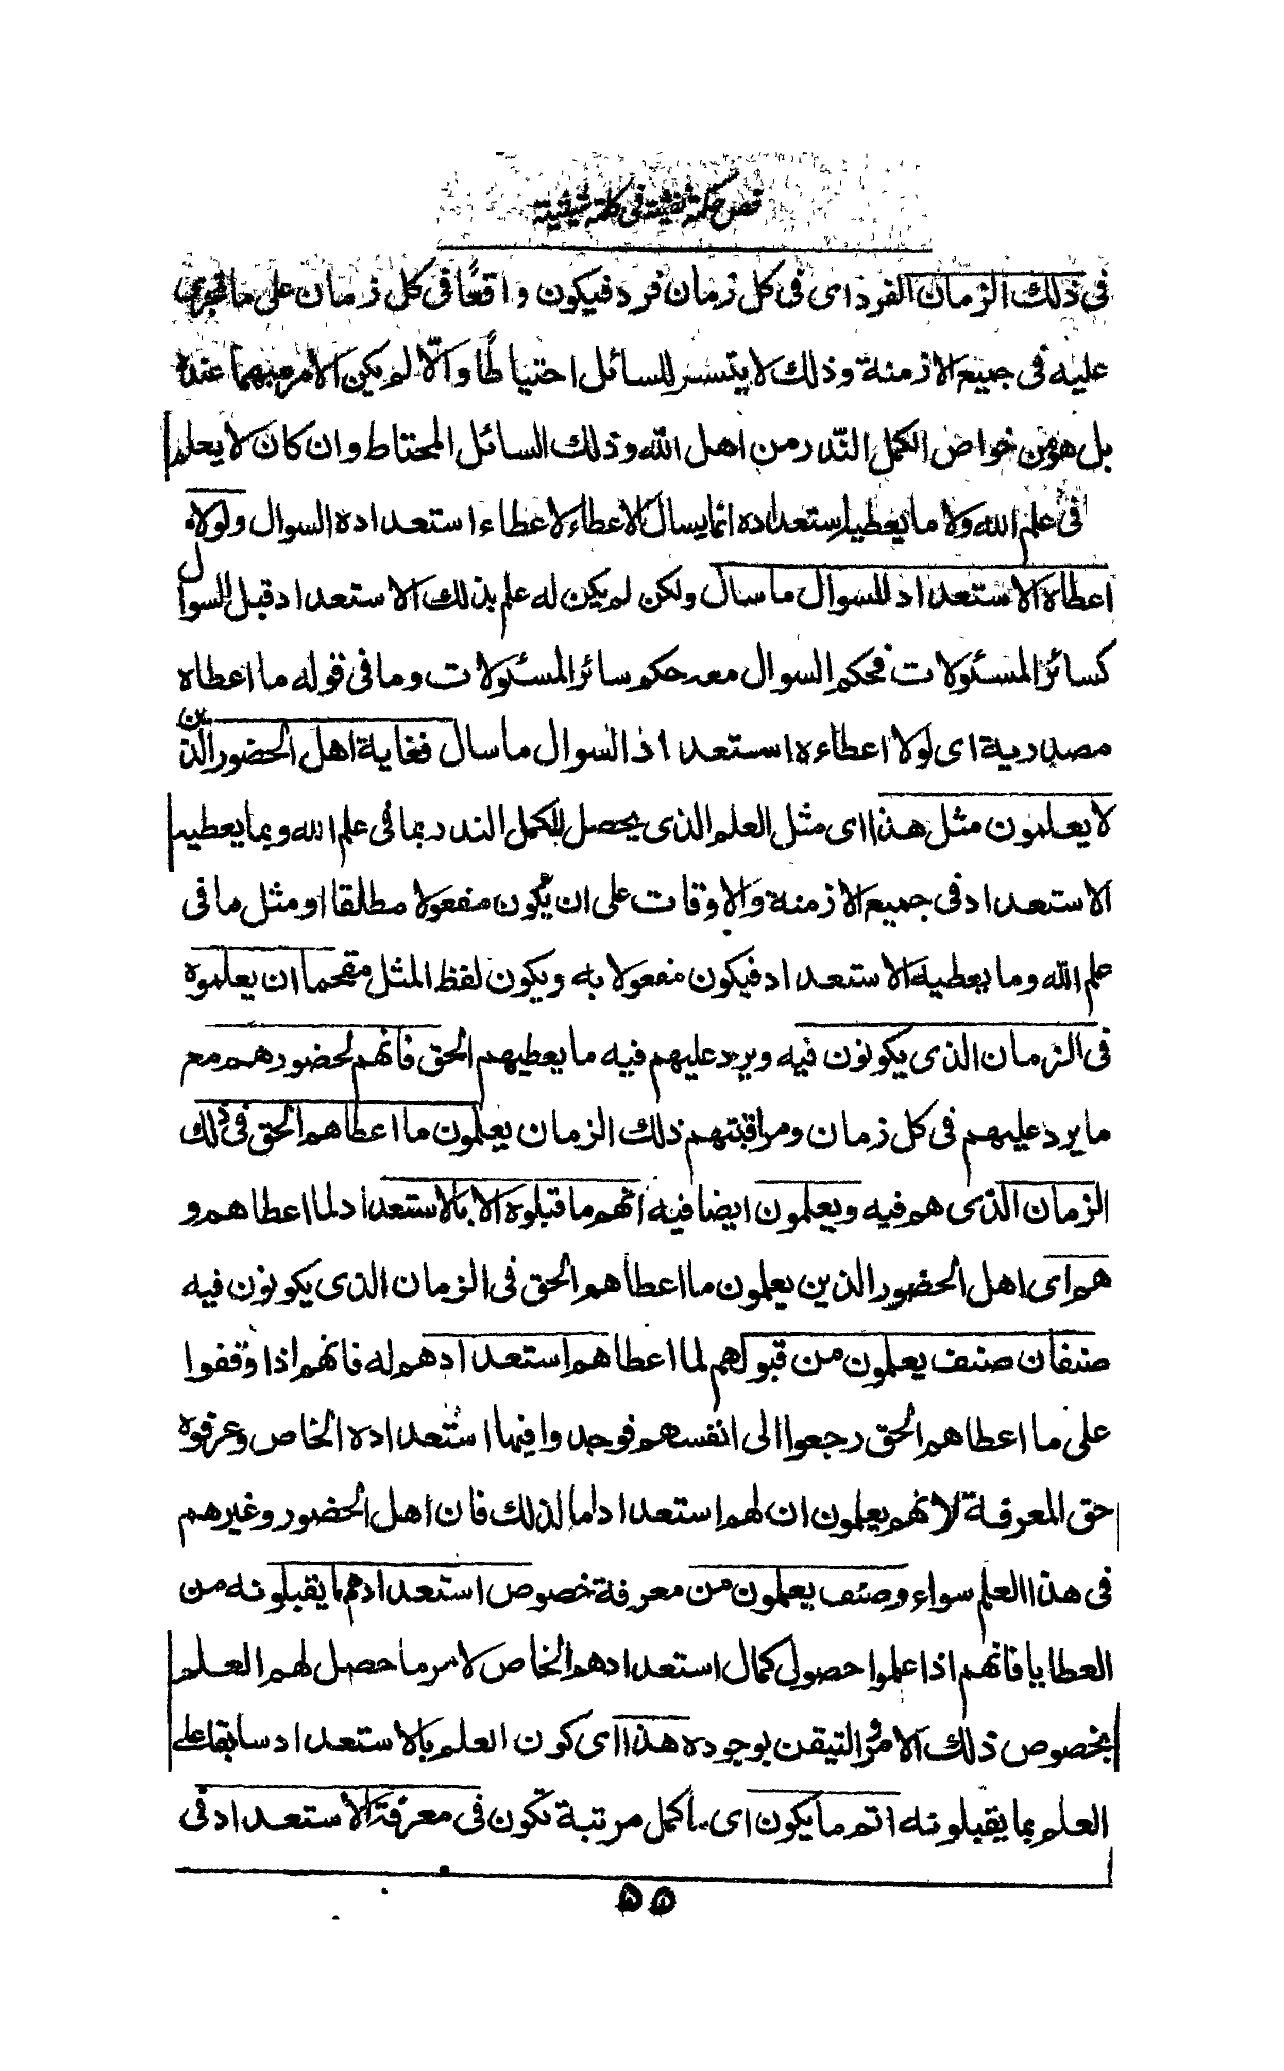 فص حكمة نفثية فى كلمة شيثية
فى ذلك الزمان الفرد اى فى كل زمان فرد فيكون واقعًا فى كل زمان على ما تجرى
عليه فى جميع الازمنة وذلك لا يتيسر للسائل احتياطًا والّا لم يكن الامر مبهما عنده
بل هو من خواص الكمل الندر من اهل الله وذلك السائل المحتاط وان كان لا يعلم
فى علم الله ولا ما يعطيه استعداده انما يسال الاعطاء لاعطاء استعداده السوال ولولا ه
اعطاه الاستعداد للسوال ما سال ولكن لم يكن له علم بذلك الاستعداد قبل السوال
كسائر المسئولات فحكم السوال معه حكم سائر المسئولات وما فى قوله ما اعطاه
مصدرية اى لولا اعطاءه استعداد السوال ما سال فغاية اهل الحضور الذين
لا يعلمون مثل هذا اى مثل العلم الذى يحصل للكمل الندر بما فى علم الله وبما يعطيه
الاستعداد فى جميع الازمنة والاوقات على ان يكون مفعولا مطلقا او مثل ما فى
علم الله وما يعطيه الاستعداد فيكون مفعولا به ويكون لفظ المثل مقحما ان يعلموه
فى الزمان الذى يكونون فيه ويرد عليهم فيه ما يعطيهم الحق فانهم لحضورهم مع
ما يرد عليهم فى كل زمان ومراقبتهم ذلك الزمان يعلمون ما اعطاهم الحق فى ذلك
الزمان الذى هم فيه ويعلمون ايضا فيه انهم ما قبلوه الا بالاستعداد لما اعطاهم و
هم اى اهل الحضور الذين يعلمون ما اعطاهم الحق فى الزمان الذى يكونون فيه
صنفان صنف يعلمون من قبولهم لما اعطاهم استعدادهم له فانهم اذا وقفوا
على ما اعطاهم الحق رجعوا الى انفسهم فوجدوا فيها استعداده الخاص وعرفوه
حق المعرفة لانهم يعلمون ان لهم استعدادا ما لذلك فان اهل الحضور وغيرهم
فى هذا العلم سواء وصنف يعلمون من معرفة خصوص استعدادهم ما يقبلونه من
العطايا فانهم اذا علموا حصول كمال استعدادهم الخاص لامر ما حصل لهم العلم
بخصوص ذلك الامر والتيقن بوجوده هذا اى كون العلم بالاستعداد سابقا على
العلم بما يقبلونه اتم ما يكون اى اكمل مرتبة تكون فى معرفة الاستعداد فى
۵۵